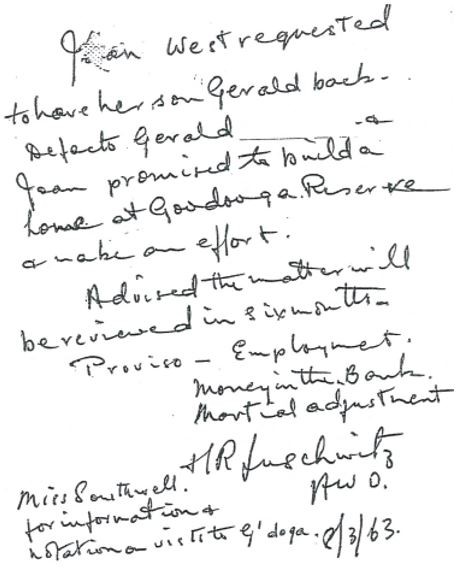 Joan West requested
to have her son Gerald back.
Defacto Gerald ______ &
Joan promised to build a
home at Goodooga Reserve
& make an effort.
Advised the matter will
be reviewed in six months
Proviso - Employmet.
Money in the Bank.
Martial adjustment
HR
AWO.
Miss Southwell.
for information &
notation on visit to G'dooga. 8/3/63.